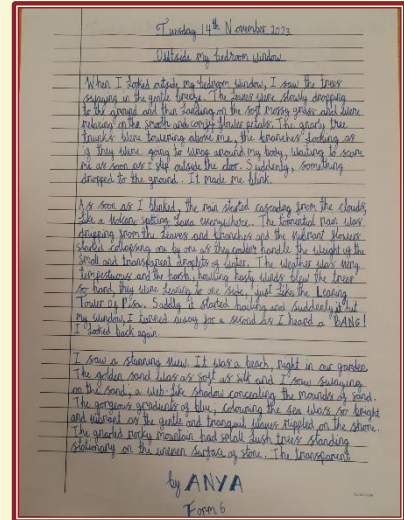 Tuesday 14th November 2023
Outside my bedroom window
When I looked outside my bedroom window, I saw the trees
swaying in the gentle breeze. The leaves were slowly dropping
to the ground and then landing on the soft mossy grass and were
relaxing on the smooth and flower petals. The gnarly tree
trunks were towering above me, the branches looking as
if they were going to wrap around my body, waiting to scare
me as soon as I step outside the door. Suddenly, something
dropped to the ground. It made me blink.
As soon as I blinked, the rain started cascading from the clouds,
like a volcano spitting lava everywhere. The torrential rain was
dripping from the leaves and branches and the vibrant flowers
started collapsing one by one as they couldn't handle the weight of the
small and transparent droplets of water. The weather was very
tempestuous and the harsh, howling winds blew the trees
so hard, they were leaning to one side, just like the Leaning
Tower of Pisa. Sadly it started hailing and suddenly it hit
my window, I turned away for a second as I heard a "BANG!
I looked back again.
I saw a stunning view. It was a beach, right in our garden.
The golden sand was as soft as silk and I saw swaying
on the sand, a web-like shadow concealing the mounds of sand.
The gorgeous gradients of blue, colouring the sea was so bright
and vibrant as the gentle and tranquil waves rippled on the shore.
The gnarled rocky mountain had small lush trees standing
stationary on the uneven surface of stone. The transparent
by ANYA
Form 6